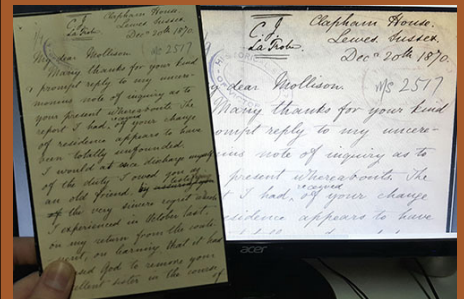 C. J.
La Trobe
Clapham House.
Lewes Sussex.
Dec 20th 1870.
My dear Mollison.
MS 2517
Many thanks for your kind
& prompt reply to my uncere-
monious note of inquiry as to
your present whereabouts. The
report I had, received of your change
of residence appears to have
been totally unfounded.
I would at once discharge myself
of the duty I owed you as
an old friend, by testifying
of the very sincere regret which
I experienced in October last,
on my return from the conti-
nent, on learning that it had
pleased God to remove your
excellent sister in the course
of
C. J.
La Trobe
Clapham House.
Lewes Sussex.
Decr 20th 1870.
y dear Mollison.
MS 2517
Many thanks for your kind
ompt reply to my uncere-
nious note of inquiry as to
present whereabouts. The
t I had, received of your change
esidence appears to have
acer